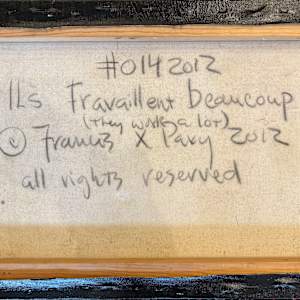 #014 2012
ILs Travaillent beaucoup
(they work a lot)
© Francis X Pavy 2012
all rights reserved